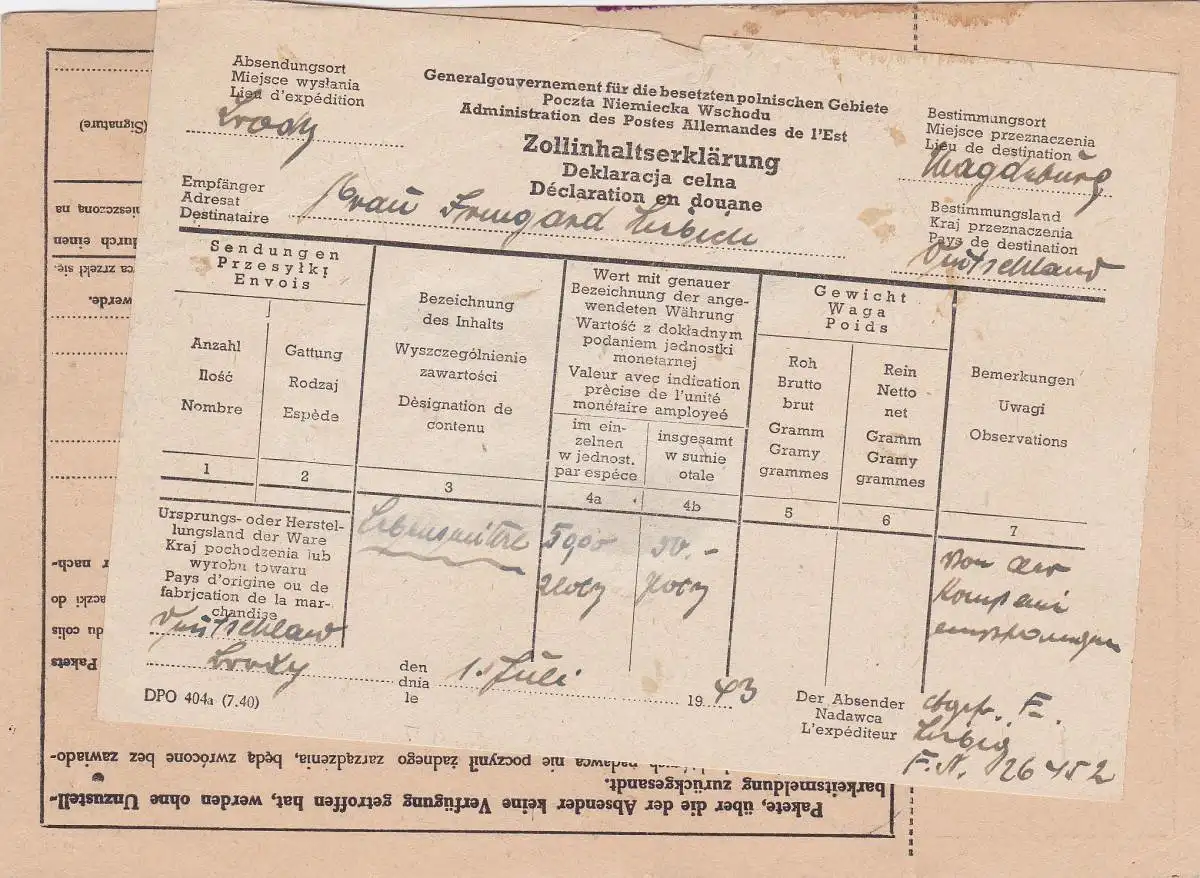 Absendungsort
Miejsce wysłania
Lieu d'expédition
Brody
Generalgouvernement für die besetzten polnischen Gebiete
Poczta Niemiecka Wschodu
Administration des Postes Allemandes de l'Est
Zollinhaltserklärung
Deklaracja celna
Déclaration en douane
Bestimmungsort
Miejsce przeznaczenia
Lieu de destination
Magdeburg
Empfänger
Adresat
Destinataire
Frau Irmgard Liebich
Bestimmungsland
Kraj przeznaczenia
Pays de destination
Deutschland
Sendungen
Przesyłki
Envois
Anzahl
Ilość
Nombre
Gattung
Rodzaj
Espède
Bezeichnung
des Inhalts
Wyszczególnienie
zawartości
Dèsignation de
contenu
Wert mit genauer
Bezeichnung der ange-
wendeten Währung
Wartość z dokładnym
podaniem jednostki
monetarnej
Valeur avec indication
prècise de l'unité
monétaire amployeé
im ein-
zelnen
w jednost.
par espéce
insgesamt
w sumie
otale
Gewicht
Waga
Poids
Roh
Brutto
brut
Gramm
Gramy
grammes
Rein
Netto
net
Gramm
Gramy
grammes
Bemerkungen
Uwagi
Observations
1
2
3
4a
4b
5
6
7
Ursprungs- oder Herstel-
lungsland der Ware
Kraj pochodzenia lub
wyrobu towaru
Pays d'origine ou de
fabrjcation de la mar-
chandize
Deutschland
Lebensmittel
Zloty
50.-
Zloty
von der
Kompanie
empfangen
Brody
den
dnia
le
1. Juli
1943
DPO 404a (7.40)
Der Absender
Nadawca
L'expéditeur
F.
F.N. 26452
(Signature)
nieszczoną na
durch einen
werde.
r nach-
aczki do
du colis
Pakets
Pakete, über die der Absender keine Verfügung getroffen hat, werden ohne Unzustell-
barkeitsmeldung zurückgesandt.
nadawca nie poczynił żadnego zarządzenia, będą zwrócone bez zawiado-